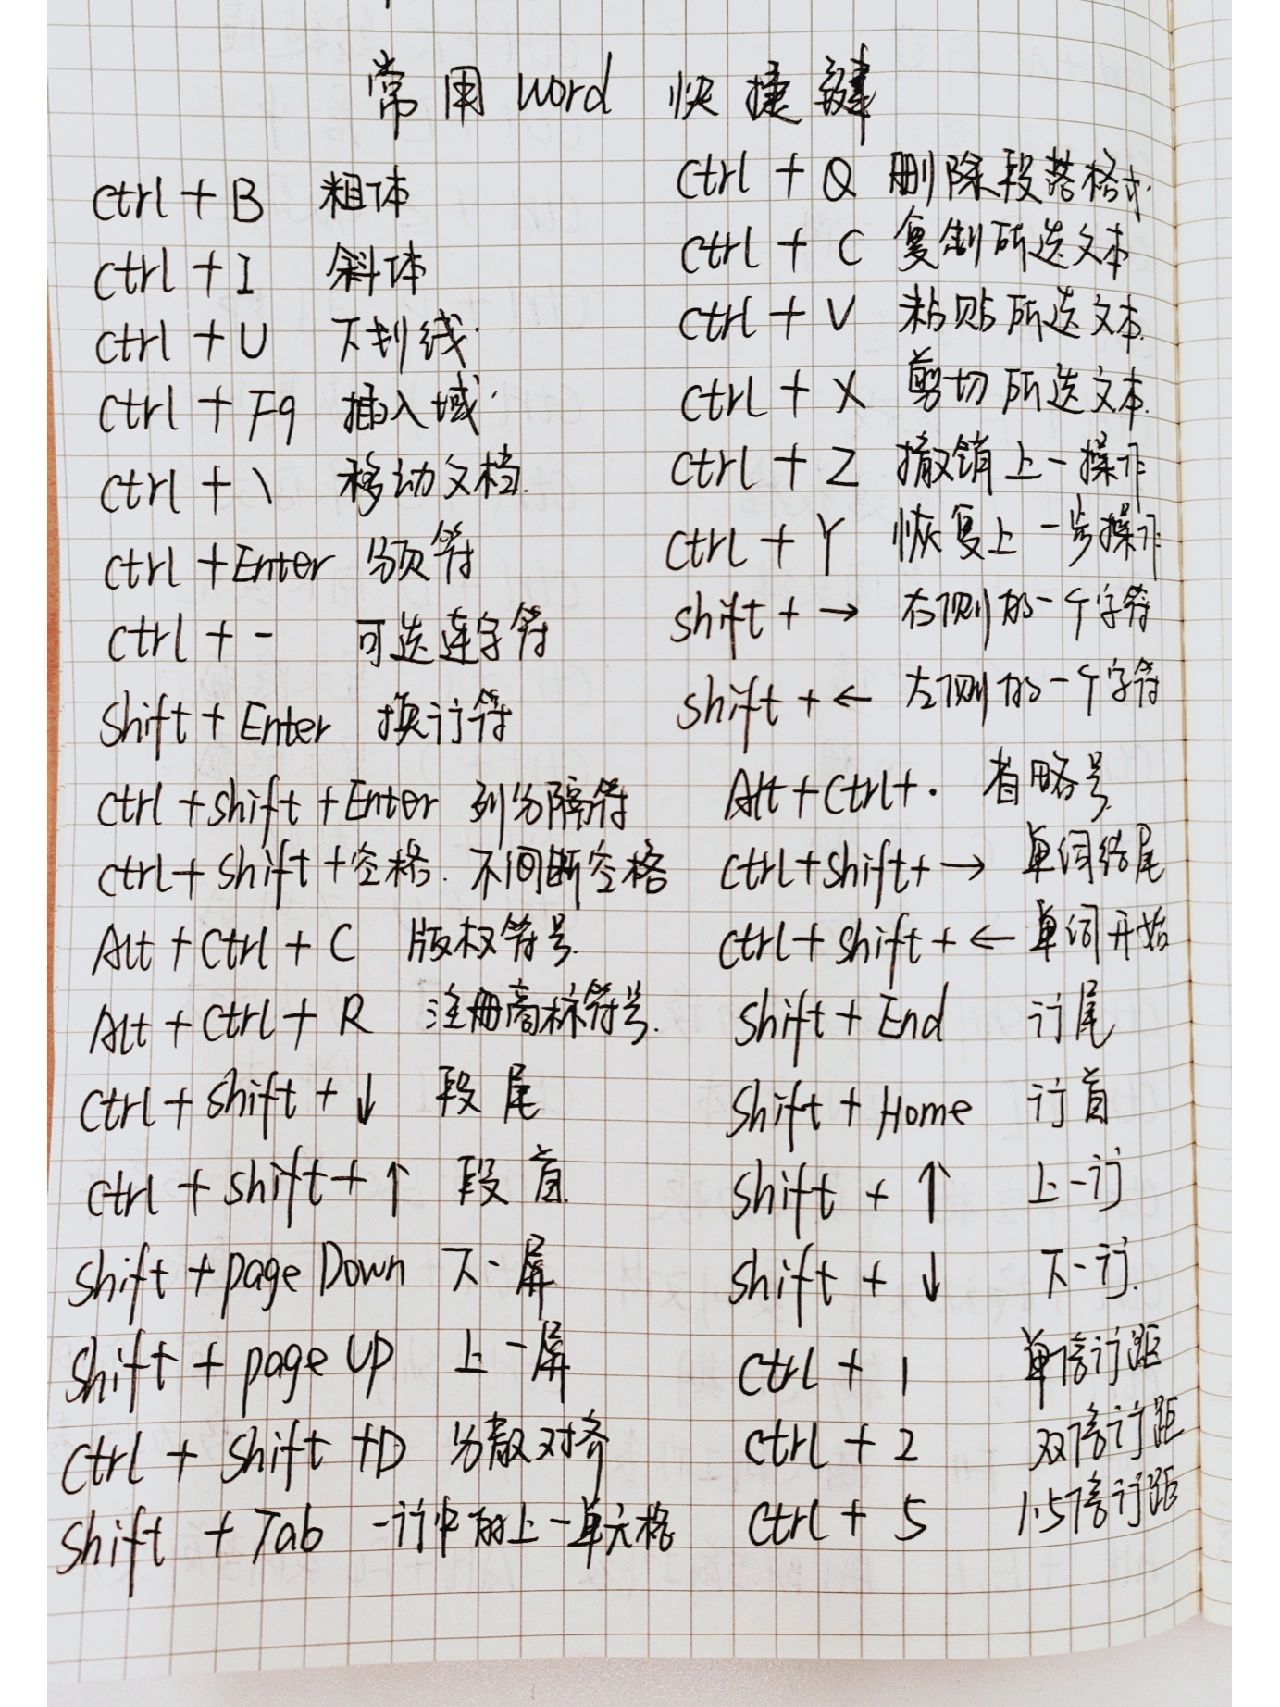 常用Word 快捷键
Ctrl + B 粗体
Ctrl + I 斜体
Ctrl + U 下划线
Ctrl + F9 插入域
Ctrl + \ 移动文档
Ctrl + Enter 分页符
Ctrl + - 可选连字符
Shift + Enter 换行符
Ctrl + shift + Enter 列分隔符
Ctrl + shift + 空格. 不间断空格
Alt + Ctrl + C 版权符号.
Alt + Ctrl + R 注册商标符号.
Ctrl + shift + ↓ 段尾
Ctrl + shift + ↑ 段首.
Shift + page Down 下一屏
Shift + page Up 上一屏
Ctrl + Shift + D 分散对齐
Shift + Tab 一行中的上一单元格
Ctrl + Q 删除段落格式.
Ctrl + C 复制所选文本
Ctrl + V 粘贴所选文本.
Ctrl + X 剪切所选文本.
Ctrl + Z 撤销上一操作
Ctrl + Y 恢复上一步操作
shift + → 右侧的一个字符
shift + ← 左侧的一个字符
Alt + Ctrl + . 省略号.
Ctrl + Shift + → 单词结尾
Ctrl + shift + ← 单词开始
Shift + End 行尾
Shift + Home 行首
Shift + ↑ 上一行
Shift + ↓ 下一行.
Ctrl + 1 单倍行距
Ctrl + 2 双倍行距
Ctrl + 5 1.5倍行距